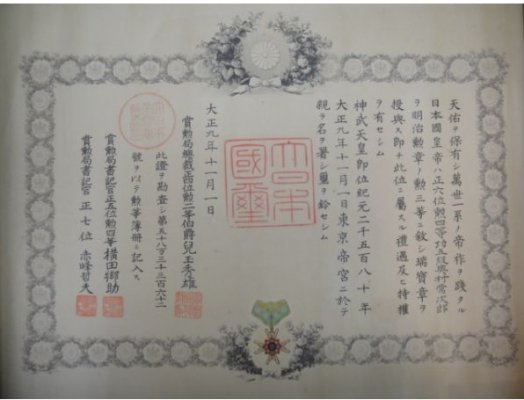 天佑ヲ保有シ萬世一系ノ帝祚ヲ踐タル
日本國皇帝ハ正六位勲四等功五級奥村常次郎
ヲ明治勲章ノ勲三等ニ敘シ瑞寶章ヲ
授與ス即チ此位ニ屬スル禮遇及ヒ特權
ヲ有セシム
神武天皇即位紀元二千五百八十年
大正九年十一月一日東京帝宮ニ於テ
親ラ名ヲ署シ璽ヲ鈐セシム
大日本
國璽
大正九年十一月一日
賞勲局總裁正四位勲二等伯爵兒玉秀雄
此證ヲ勘査シ第五十八万三千三百六十二
號ヲ以テ勲等簿冊ニ記入ス
賞勲局書記官正五位勲四等横田郷助
賞勲局書記官正七位赤峰哲夫